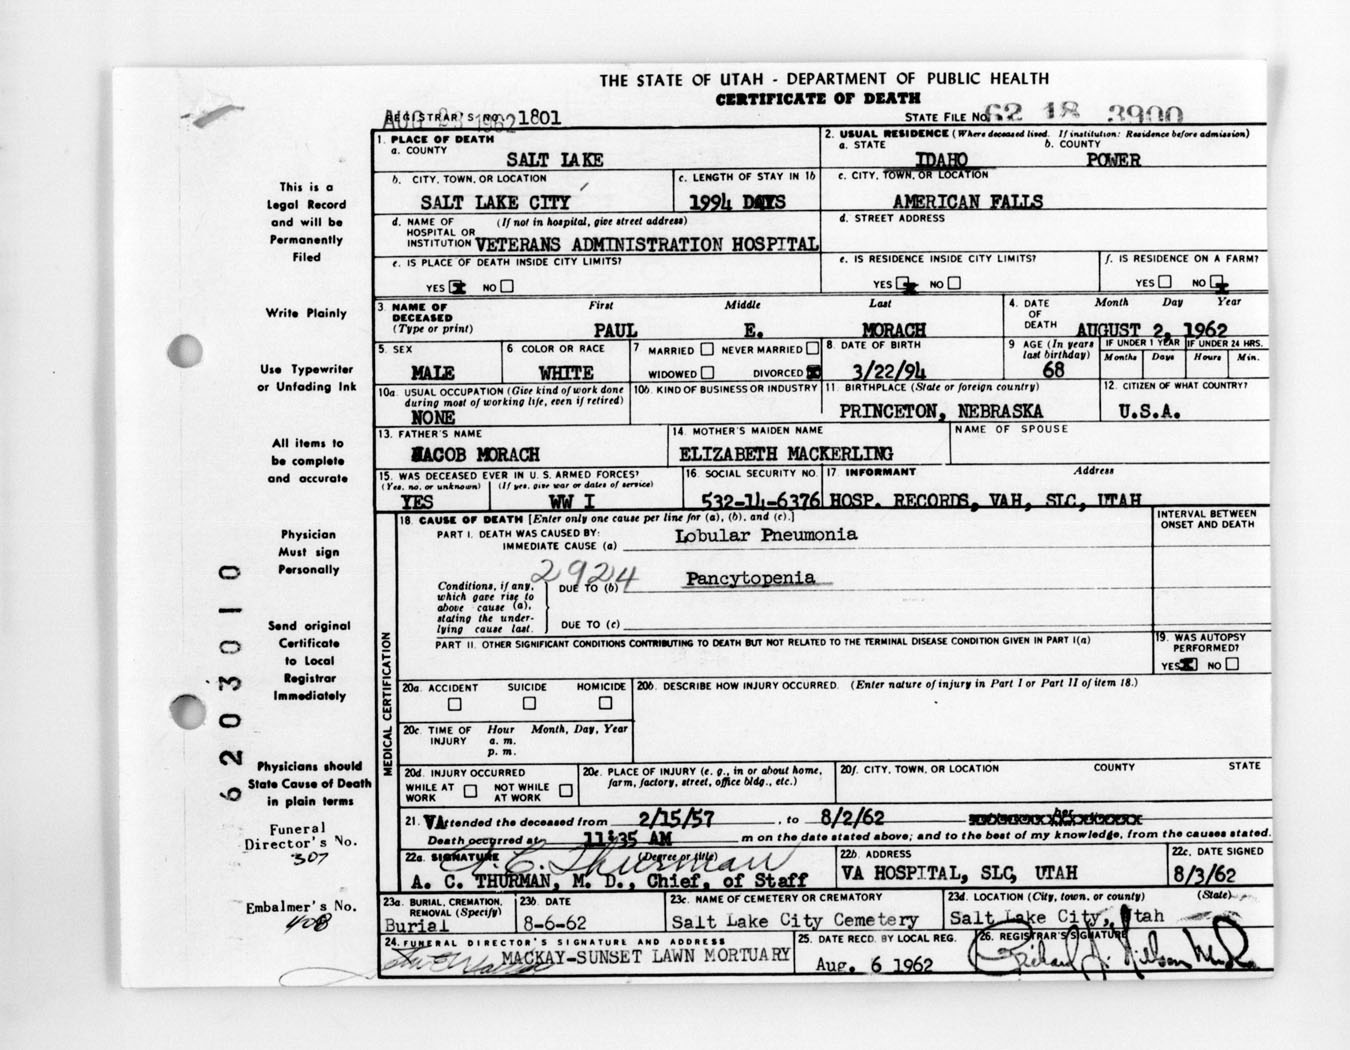 THE STATE OF UTAH - DEPARTMENT OF PUBLIC HEALTH
CERTIFICATE OF DEATH
AUG 23 1962
REGISTRAR'S NO. 1801
STATE FILE NO. 62 18 3900
1. PLACE OF DEATH
a. COUNTY
SALT LAKE
2. USUAL RESIDENCE (Where deceased lived. If institution: Residence before admission)
a. STATE
b. COUNTY
IDAHO POWER
b. CITY, TOWN, OR LOCATION
SALT LAKE CITY
c. LENGTH OF STAY IN 1b
1994 DAYS
c. CITY, TOWN, OR LOCATION
AMERICAN FALLS
d. NAME OF (If not in hospital, give street address)
HOSPITAL OR
INSTITUTION VETERANS ADMINISTRATION HOSPITAL
d. STREET ADDRESS
e. IS PLACE OF DEATH INSIDE CITY LIMITS?
YES NO
e. IS RESIDENCE INSIDE CITY LIMITS?
YES NO
f. IS RESIDENCE ON A FARM?
YES NO
3. NAME OF First Middle Last
DECEASED
(Type or print) PAUL E. MORACH
4. DATE Month Day Year
OF
DEATH AUGUST 2, 1962
5. SEX
MALE
6 COLOR OR RACE
WHITE
7 MARRIED NEVER MARRIED
WIDOWED DIVORCED
8. DATE OF BIRTH
3/22/94
9 AGE (In years
last birthday)
68
IF UNDER 1 YEAR IF UNDER 24 HRS.
Months Days Hours Min.
10a. USUAL OCCUPATION (Give kind of work done
during most of working life, even if retired)
NONE
10b. KIND OF BUSINESS OR INDUSTRY
11. BIRTHPLACE (State or foreign country)
PRINCETON, NEBRASKA
12. CITIZEN OF WHAT COUNTRY?
U.S.A.
13. FATHER'S NAME
JACOB MORACH
14. MOTHER'S MAIDEN NAME
ELIZABETH MACKERLING
NAME OF SPOUSE
15. WAS DECEASED EVER IN U.S. ARMED FORCES?
(Yes, no, or unknown) (If yes, give war or dates of service)
YES WW I
16. SOCIAL SECURITY NO.
532-14-6376
17. INFORMANT Address
HOSP. RECORDS, VAH, SLC, UTAH
MEDICAL CERTIFICATION
18. CAUSE OF DEATH [Enter only one cause per line for (a), (b), and (c).]
INTERVAL BETWEEN
ONSET AND DEATH
PART I. DEATH WAS CAUSED BY:
IMMEDIATE CAUSE (a) Lobular Pneumonia
2924
Conditions, if any,
which gave rise to
above cause (a),
stating the under-
lying cause last.
DUE TO (b) Pancytopenia
DUE TO (c)
PART II. OTHER SIGNIFICANT CONDITIONS CONTRIBUTING TO DEATH BUT NOT RELATED TO THE TERMINAL DISEASE CONDITION GIVEN IN PART I(a)
19. WAS AUTOPSY
PERFORMED?
YES NO
20a. ACCIDENT SUICIDE HOMICIDE
20b. DESCRIBE HOW INJURY OCCURRED. (Enter nature of injury in Part I or Part II of item 18.)
20c. TIME OF Hour Month, Day, Year
INJURY a. m.
p. m.
20d. INJURY OCCURRED
WHILE AT WORK NOT WHILE AT WORK
20e. PLACE OF INJURY (e. g., in or about home,
farm, factory, street, office bldg., etc.)
20f. CITY, TOWN, OR LOCATION COUNTY STATE
21. VA ttended the deceased from 2/15/57, to 8/2/62
Death occurred at 11:35 AM m on the date stated above; and to the best of my knowledge, from the causes stated.
22a. SIGNATURE (Degree or title)
A. C. Thurman
A. C. THURMAN, M. D., Chief, of Staff
22b. ADDRESS
VA HOSPITAL, SLC, UTAH
22c. DATE SIGNED
8/3/62
23a. BURIAL, CREMATION,
REMOVAL (Specify)
Burial
23b. DATE
8-6-62
23c. NAME OF CEMETERY OR CREMATORY
Salt Lake City Cemetery
23d. LOCATION (City, town, or county) (State)
Salt Lake City, Utah
24. FUNERAL DIRECTOR'S SIGNATURE AND ADDRESS
MACKAY-SUNSET LAWN MORTUARY
25. DATE RECD. BY LOCAL REG.
Aug. 6 1962
26. REGISTRAR'S SIGNATURE
This is a
Legal Record
and will be
Permanently
Filed
Write Plainly
Use Typewriter
or Unfading Ink
All items to
be complete
and accurate
Physician
Must sign
Personally
Send original
Certificate
to Local
Registrar
Immediately
Physicians should
State Cause of Death
in plain terms
Funeral
Director's No.
307
Embalmer's No.
408
6203010